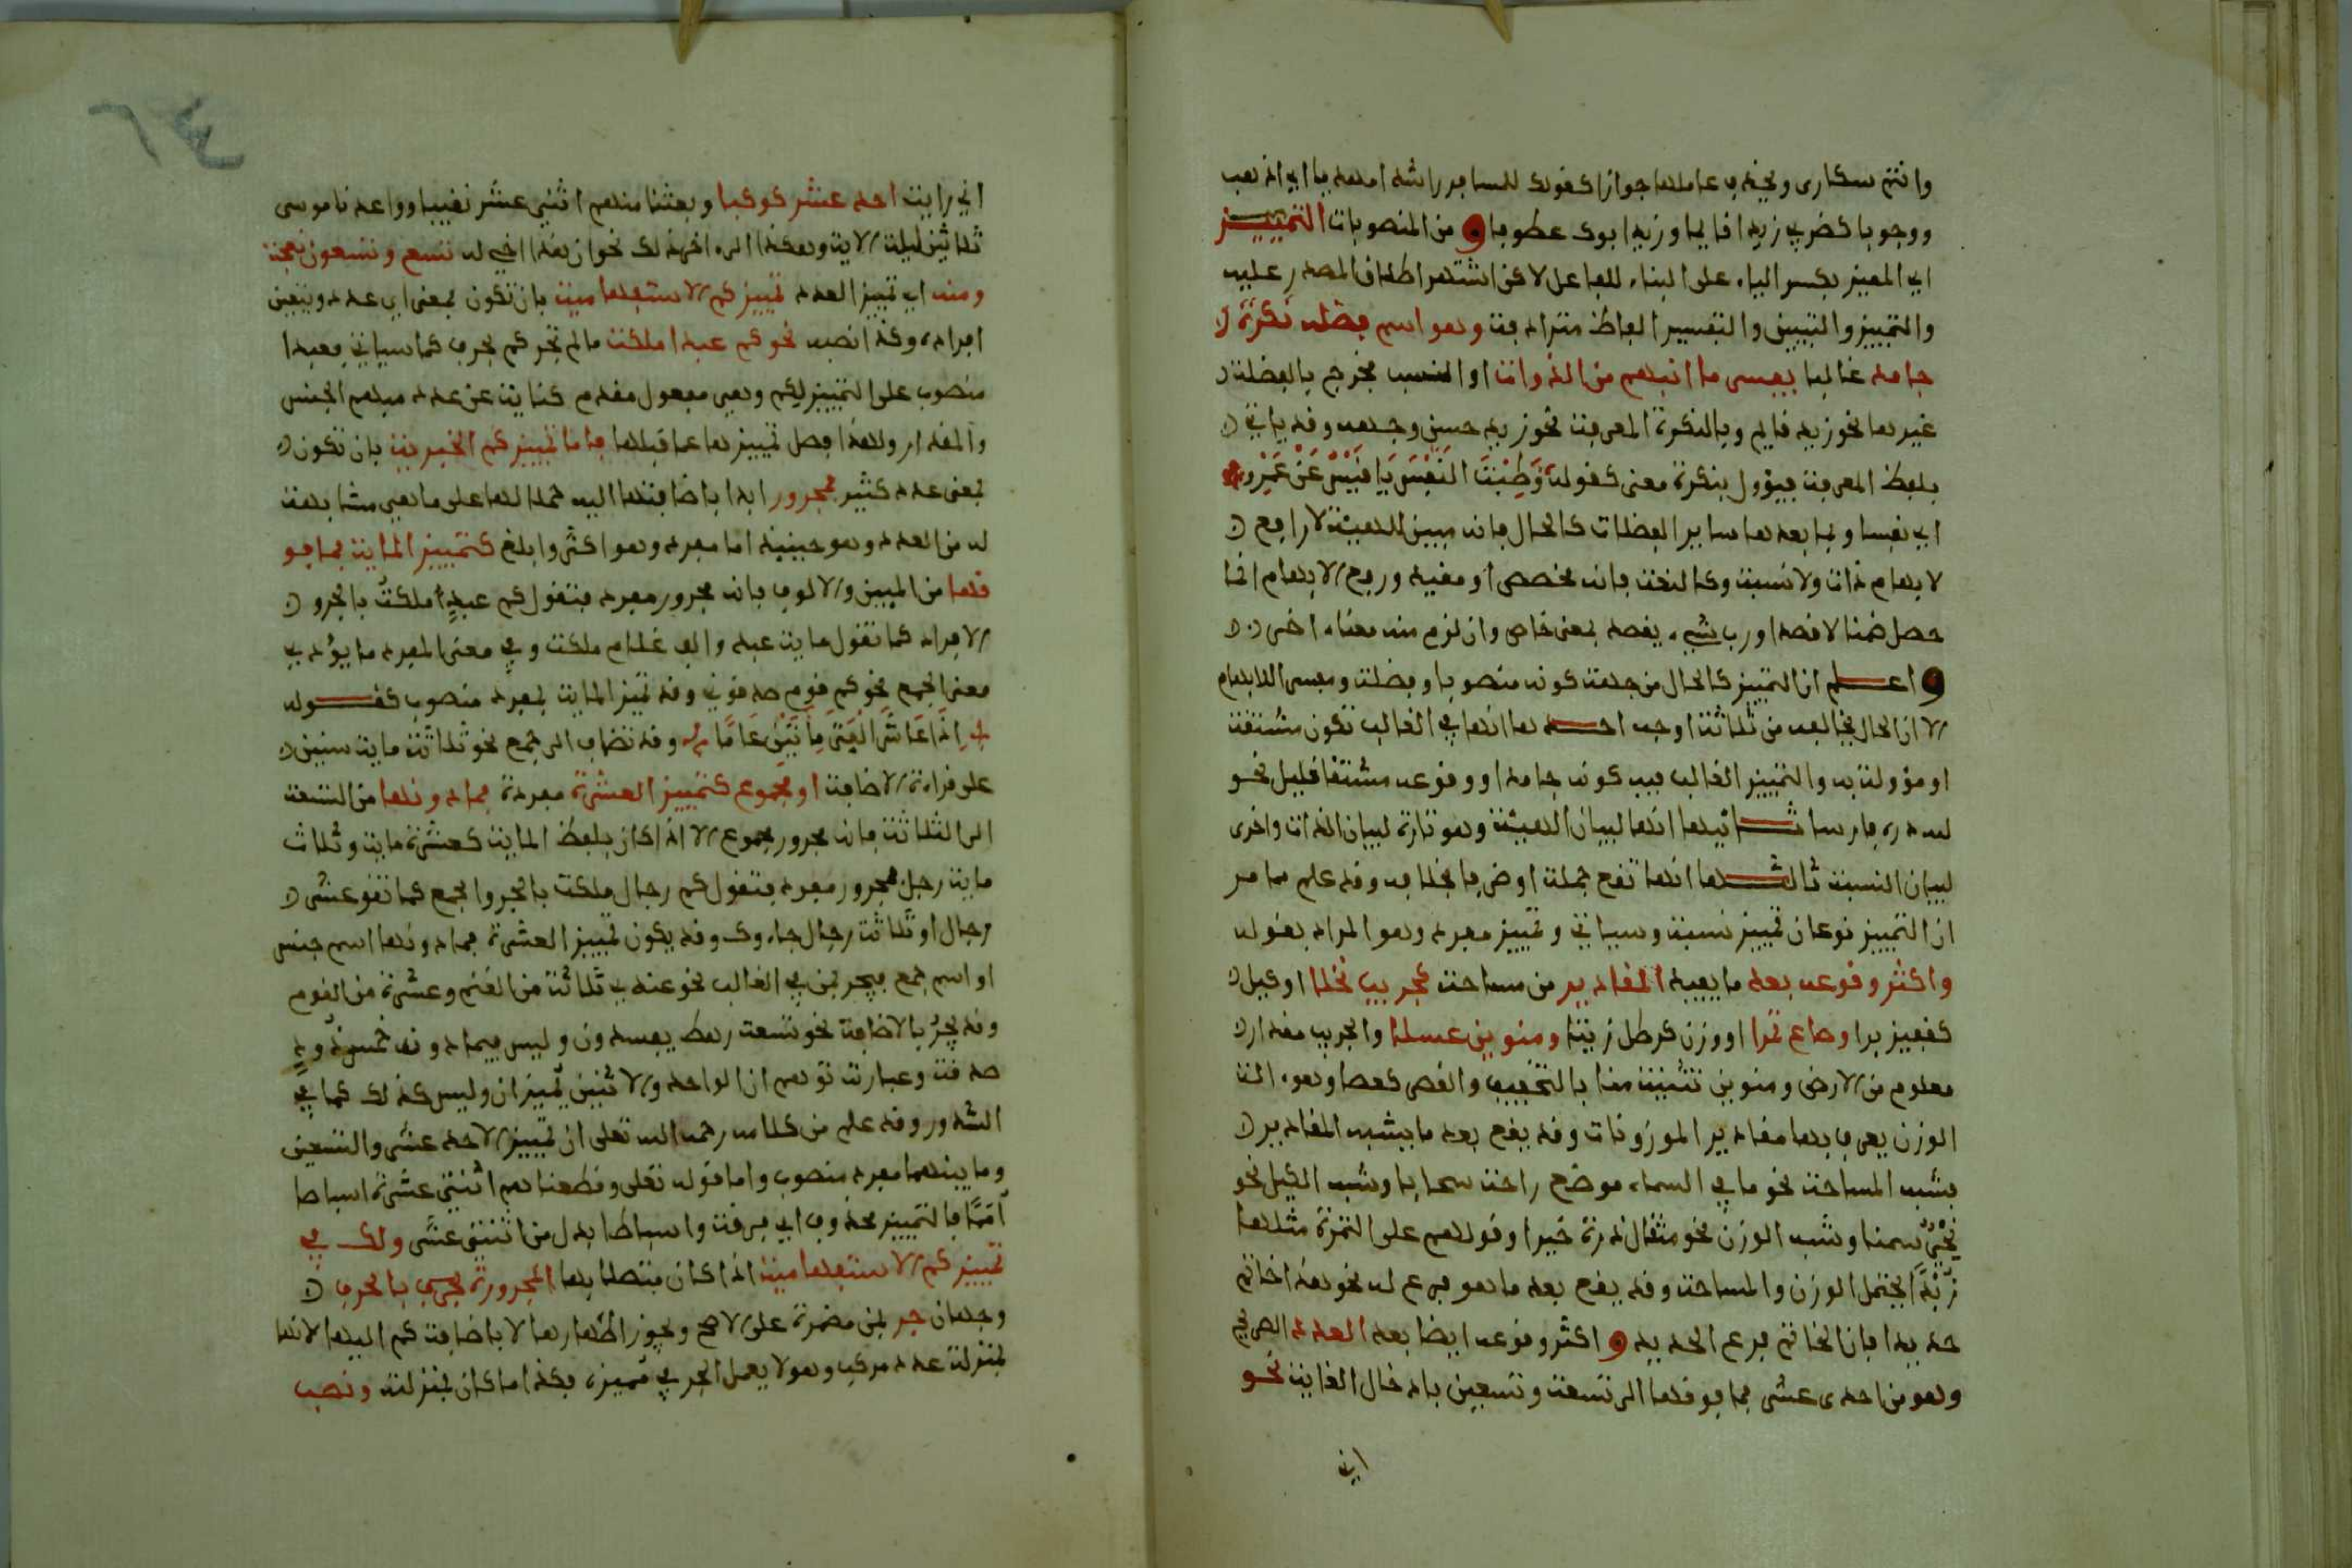 وانتم سكارى ويحذف عاملها جوازا كقولك للمسافر راشدا مهديا اي اذهب
ووجوبا كضربي زيدا قايما وزيد ابوك عطوفا و من المنصوبات التمييز
اي المميز بكسر الياء على البناء للفاعل لاكن اشتهر اطلاق المصدر عليه
والتمييز والتبيين والتفسير الفاظ مترادفة وهو اسم فضلة نكرة
جامد غالبا يفسر ما انبهم من الذوات او النسب فخرج بالفضلة
غيرها نحو زيد قايم وبالنكرة المعرفة نحو زيد حسن وجهه وقد ياتي
بلفظ المعرفة فيؤول بنكرة معنى كقوله وَطِبْتَ النَفْسَ يَا قَيْسُ عَنْ عَمْرِو
اي نفسا وبما بعدها ساير الفضلات كالحال فانه مبين للهيئة لا رافع
لابهام ذات ولا نسبة وكالنعت فانه مخصص او مقيد ورفع الابهام انما
حصل ضمنا لا قصدا ورب شيء يقصد بمعنى خاص وان لزم منه معناه اخر
و اعلم ان التمييز كالحال من جهة كونه منصوبا وفضلة ومفسر للابهام
الا ان الحال يخالفه من ثلاثة اوجه احدها انها في الغالب تكون مشتقة
او مؤولة به والتمييز الغالب فيه كونه جامدا ووقوعه مشتقا قليل نحو
لله دره فارسا ثانيها انها لبيان الهيئة وهو تارة لبيان الذات واخرى
لبيان النسبة ثالثها انها تقع جملة او ظرفا بخلافه وقد علم مما مر
ان التمييز نوعان تمييز نسبة وسياتي وتمييز مفرد وهو المراد بقوله
واكثر وقوعه بعد ما يفيد المقادير من مساحة كجريب نخلا او كيل
كقفيز برا وصاع تمرا او وزن كرطل زيتا ومنوين عسلا والجريب مقدار
معلوم من الارض ومنوين تثنية منا بالتخفيف والقصر كعصا وهو الة
الوزن يعرف بها مقادير الموزونات وقد يقع بعد ما يشبه المقادير
فشبه المساحة نحو ما في السماء موضع راحة سحابا وشبه الكيل نحو
نِحْيٌ سمنا وشبه الوزن نحو مثقال ذرة خيرا وقولهم على التمرة مثلها
زبدا يحتمل الوزن والمساحة وقد يقع بعد ما هو فرع له نحو هذا خاتم
حديدا فان الخاتم فرع الحديد و اكثر وقوعه ايضا بعد العدد الصريح
وهو من احدى عشر فما فوقها الى تسعة وتسعين بادخال الغاية نحو
اني
اني رايت احد عشر كوكبا وبعثنا منهم اثني عشر نقيبا وواعدنا موسى
ثلاثين ليلة الاية وهكذا الى اخر ذلك نحو ان هذا اخي له تسع وتسعون نعجة
ومنه اي تمييز العدد تمييز كم الاستفهامية بان تكون بمعنى اي عدد ويتعين
افراده وكذا نصبه نحو كم عبدا ملكت ما لم تجر كم بحرف كما سياتي فعبدا
منصوب على التمييز لكم وهي مفعول مقدم كناية عن عدد مبهم الجنس
والمقدار ولهذا فصل تمييزها عما قبلها فاما تمييز كم الخبرية بان تكون
بمعنى عدد كثير فمجرور ابدا باضافتها اليه حملا لها على ما هي مشابهة
له من العدد وهو حينيذ اما مفرد وهو اكثر وابلغ كتمييز الماية فما فو
قها من الميين والالوف فانه مجرور مفرد فتقول كم عبدٍ ملكتُ بالجر و
الافراد كما تقول ماية عبد والف غلام ملكت وفي معنى المفرد ما يؤدي
معنى الجمع نحو كم قوم صدقوني وقد تميز الماية بمفرد منصوب كقوله
اِذَا عَاشَ الْفَتَى مِأتَيْنِ عَامًا وقد تضاف الى جمع نحو ثلاثة ماية سنين
على قراءة الاضافة او مجموع كتمييز العشرة مفردة فما دونها من التسعة
الى الثلاثة فانه مجرور مجموع الا اذا كان بلفظ الماية كعشرة ماية وثلاث
ماية رجل فمجرور مفرد فتقول كم رجال ملكت بالجر والجمع كما تقول عشر
رجال او ثلاثة رجال جاءوك وقد يكون تمييز العشرة فما دونها اسم جنس
او اسم جمع فيجر بمن في الغالب نحو عندي ثلاثة من الغنم وعشرة من القوم
وقد يجرّ بالاضافة نحو تسعة رهط يفسدون وليس فيما دون خمس ذود
صدقة وعبارته توهم ان الواحد والاثنين يميزان وليس كذلك كما في
الشذور وقد علم من كلامه رحمه الله تعلى ان تمييز الاحد عشر والتسعين
وما بينهما مفرد منصوب واما قوله تعلى وقطعناهم اثنتي عشرة اسباطا
اممًا فالتمييز محذوف اي فرقة واسباطا بدل من اثنتي عشر ولك في
تمييز كم الاستفهامية اذا كان متصلا بها المجرورة بحرف بالحرف
وجهان جر بمن مضمرة على الاصح ويجوز اظهارها لا باضافة كم اليها لانها
بمنزلة عدد مركب وهو لا يعمل الجر في مميزه فكذا ما كان بمنزلته ونصب